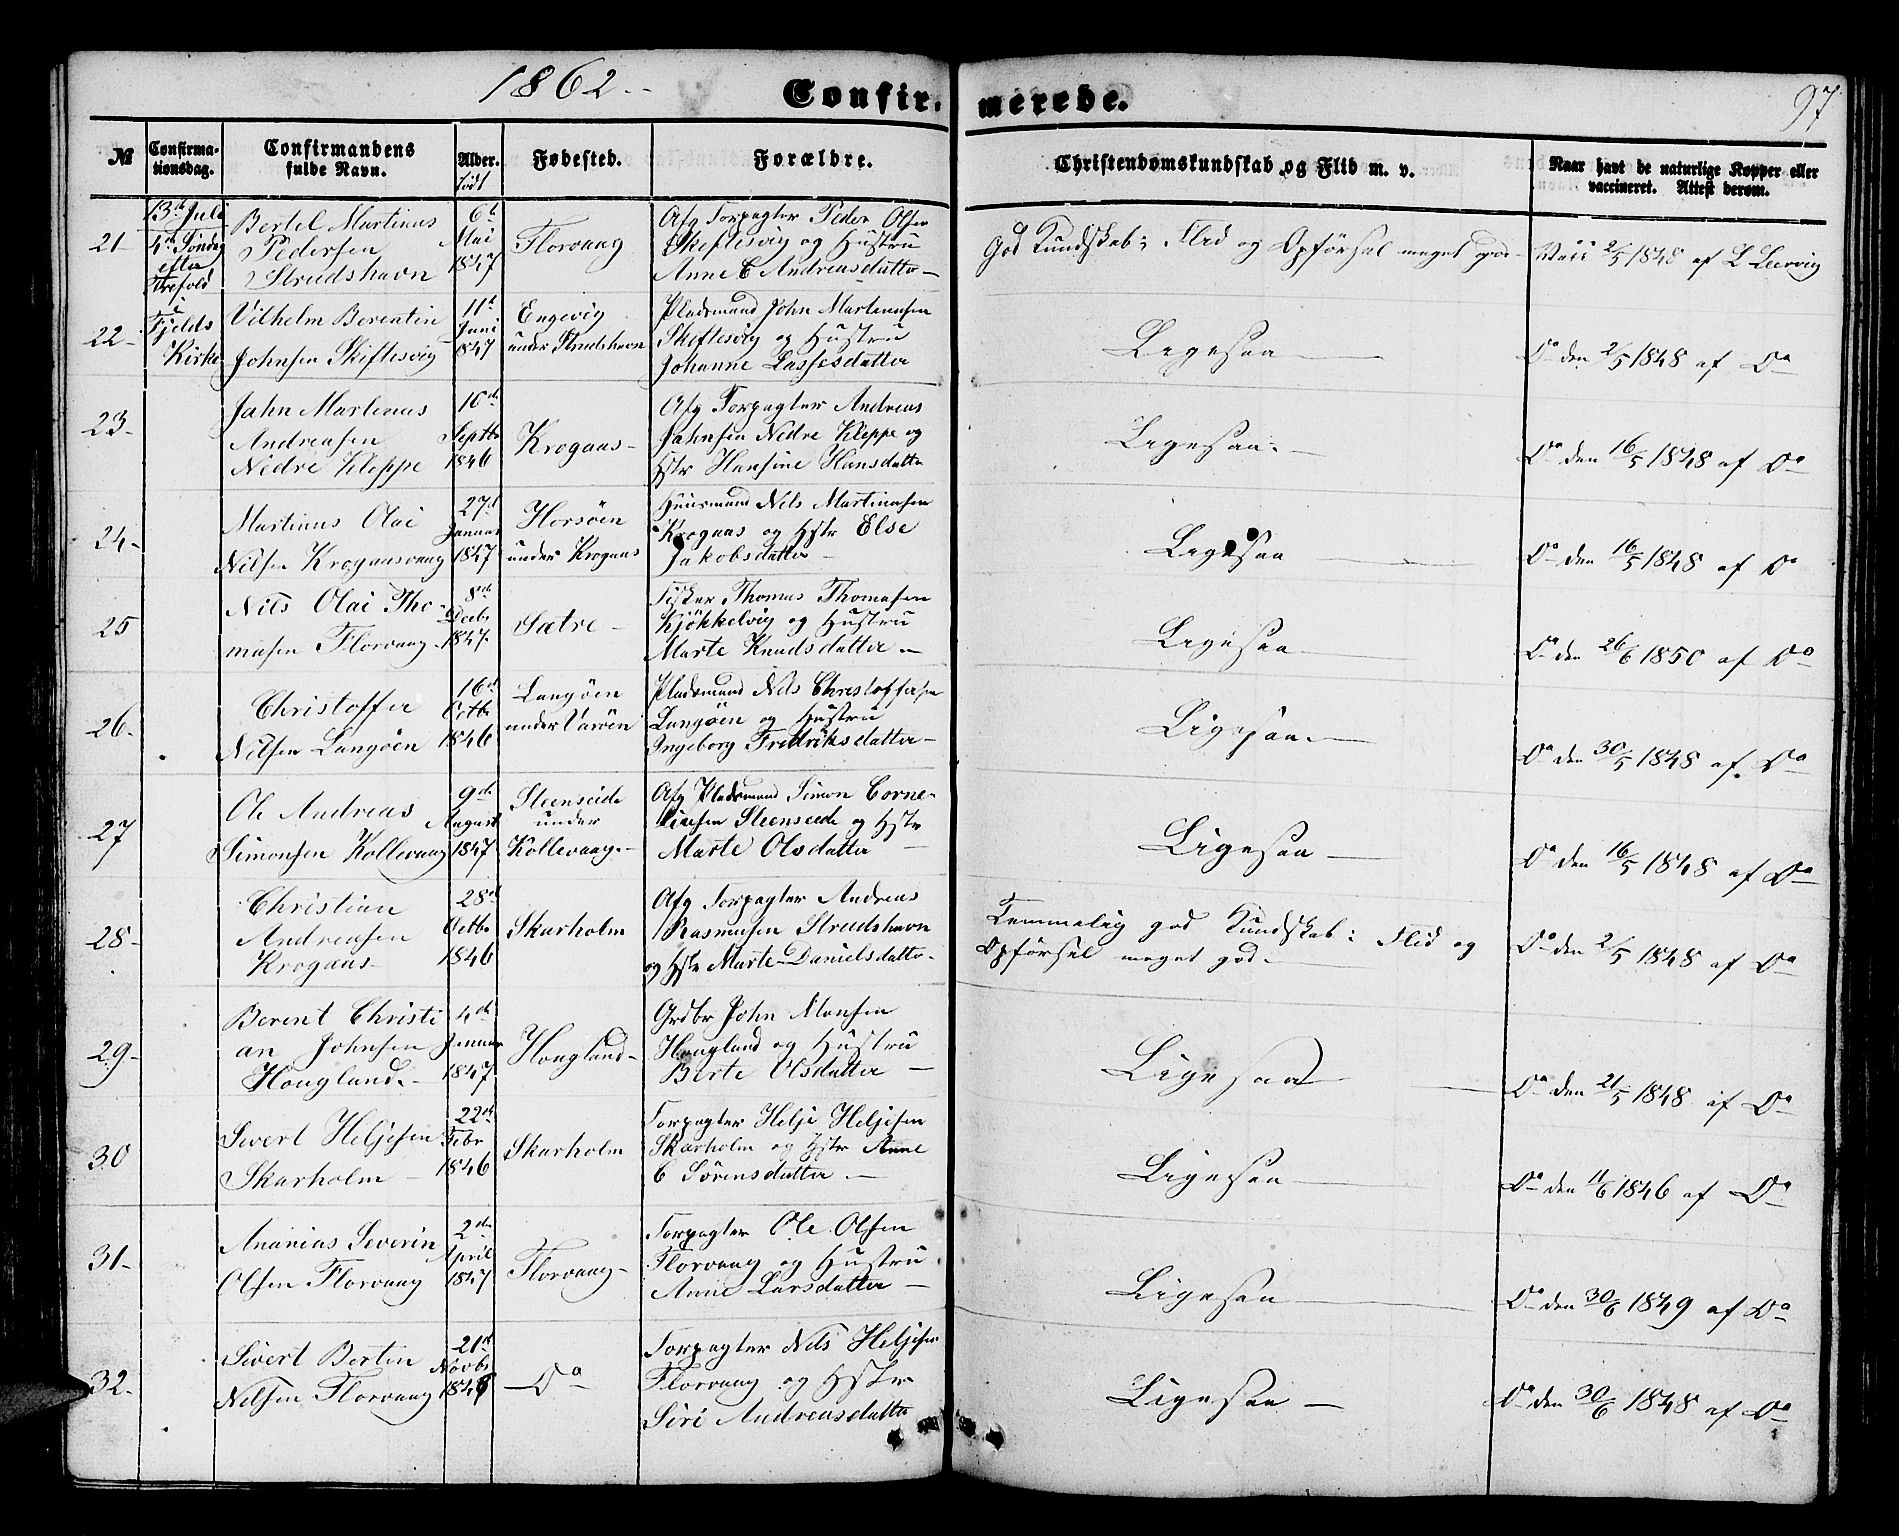 1862. Confirmerede. 97
№ Confirmationsdag. Confirmandens fulde Navn. Alder. født Fødested. Forældre. Christendomskundskab og Flid m. v. Naar havt de naturlige Kopper eller vaccineret. Attest derom.
13de Juli
4de Søndag
efter
Trefold
i
Fjelds
Kirke
21-
Bertel Martinus
Pedersen
Strudshavn
6te
Mai
1847
Florvaag
Afg Forpagter Peder Olsen
Skiftesvig og Hustru
Anne C Andreasdatter-
God Kundskab; Flid og Opførsel meget god-
Vacc 2/5 1848 af L Leervig
22-
Vilhelm Berentin
Johnsen Skiftesvig
11te
Juni
1847
Engevig
under Strudshavn
Pladsmand John Martinusen
Skiftesvig og Hustru
Johanne Lassesdatter
Ligesaa
Do den 2/5 1848 af Do
23-
Jahn Martinus
Andreasen
Nedre Kleppe
10de
Septbr
1846
Krogaas-
Afg Forpagter Andreas
Jahnsen Nedre Kleppe og
Hstr Hansine Hansdatter
Ligesaa.
Do den 16/5 1848 af Do
24-
Martinus Olai
Nilsen Krogaasvaag
27de
Januar
1847
Horsøen
under Krogaas
Huusmand Nils Martinusen
Krogaas og Hstr Else
Jakobsdatter
Ligesaa
Do den 16/5 1848 af Do
25
Nils Olai Tho-
masen Florvaag.
8de
Decbr
1847.
Sætre-
Fisker Thomas Thomasen
Kjøkkelvig og Hustru
Marte Knudsdatter-
Ligesaa
Do den 26/6 1850 af Do
26-
Christoffer
Nilsen Langøen
16de
Octbr
1846
Langøen
under Varøen
Pladsmand Nils Christoffersen
Langøen og Hustru
Ingeborg Fredriksdatter-
Ligesaa.
Do den 30/5 1848 af Do
27
Ole Andreas
Simonsen Kollevaag
9de
August
1847
Steenseide
under
Kollevaag.-
Afg Pladsmand Simon Corne-
liusen Steenseide og Hstr
Marte Olsdatter
Ligesaa
Do den 16/5 1848 af Do
28-
Christian
Andreasen
Krogaas
28de
Octbr
1846
Skarholm
Afg Forpagter Andreas
Rasmusen Strudshavn
og Hstr Marte Danielsdatter.
Temmelig god Kundskab; Flid og
Opførsel meget god.
Do den 2/5 1848 af Do
29-
Berent Christi
an Johnsen
Hougland.-
4de
Januar
1847
Hougland-
Grdbr John Monsen
Hougland og Hustru
Berte Olsdatter
Ligesaa
Do den 21/5 1848 af Do
30
Sivert Heljesen
Skarholm
22de
Febr
1846
Skarholm
Forpagter Helje Heljesen
Skarholm og Hstr Anne
C Sørensdatter.-
Ligesaa
Do den 11/6 1846 af Do
31-
Ananias Severin
Olsen Florvaag
2den
April
1847
Florvaag-
Forpagter Ole Olsen
Florvaag og Hustru
Anne Larsdatter
Ligesaa
Do den 30/6 1849 af Do
32-
Sivert Bertin
Nilsen Florvaag
21de
Novbr
1846
Do
Forpagter Nils Heljesen
Florvaag og Hstr
Siri Andreasdatter
Ligesaa
Do den 30/6 1848 af Do